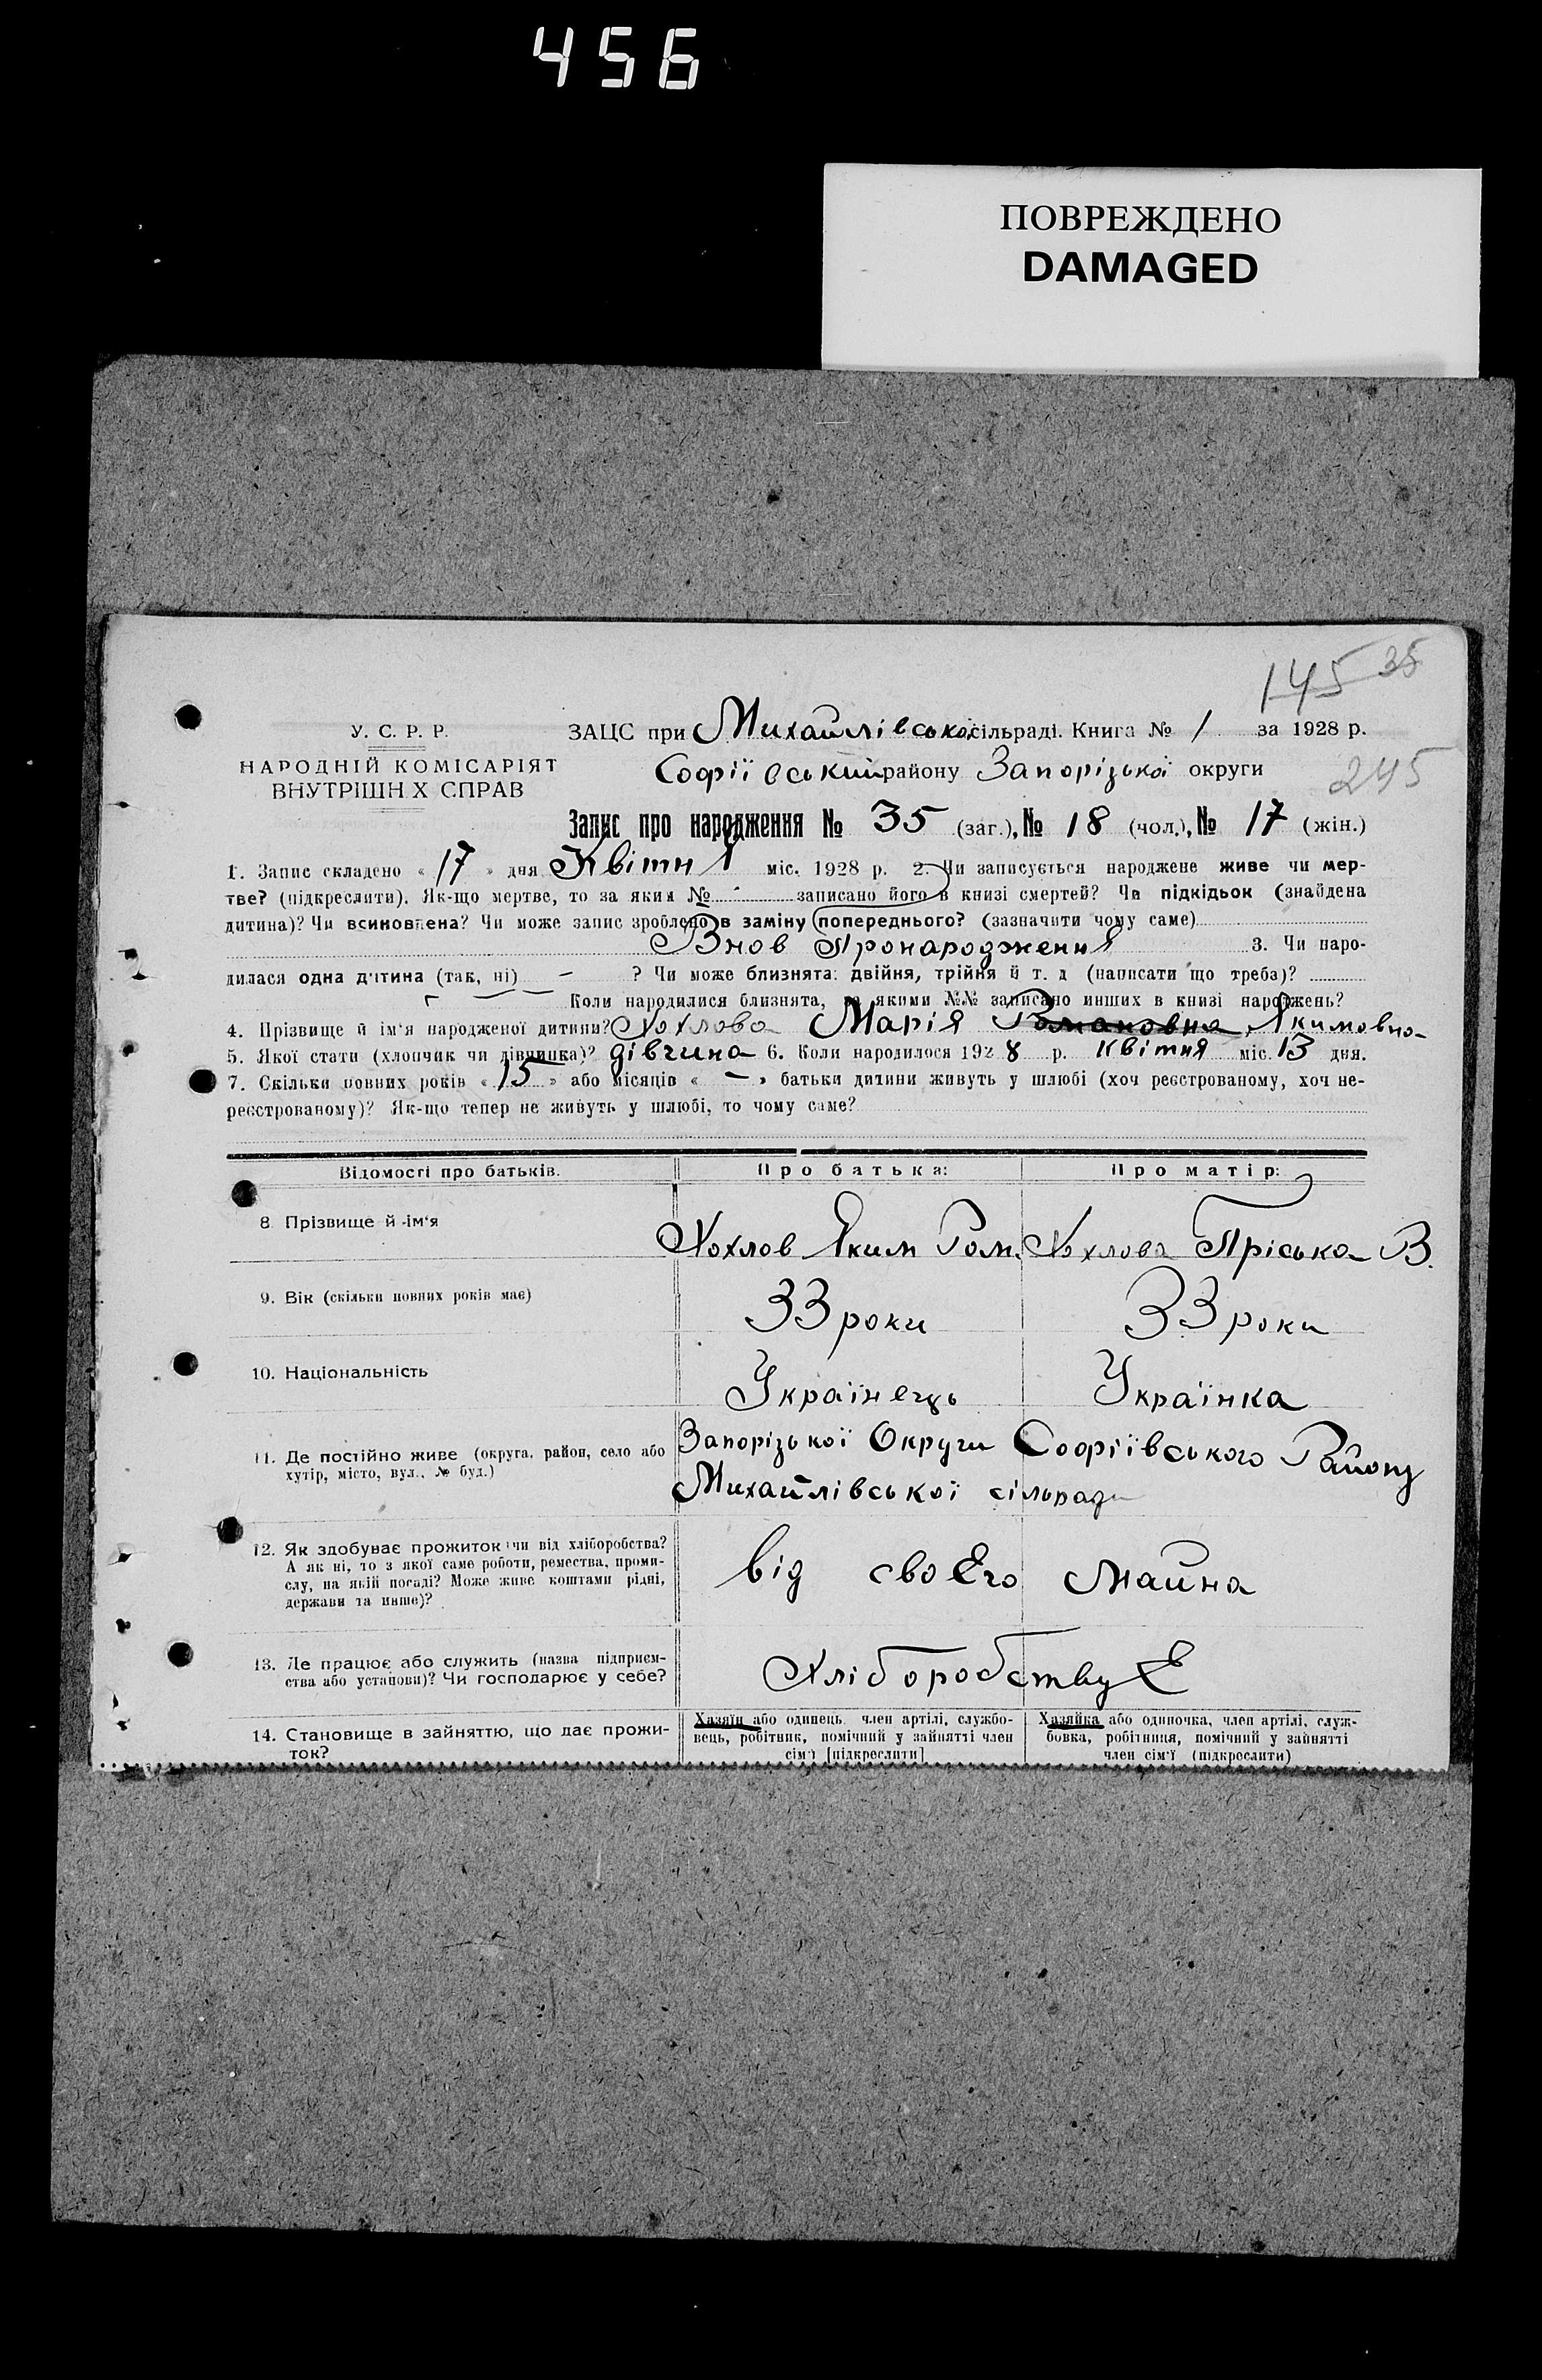 456
ПОВРЕЖДЕНО
DAMAGED
145 35
У. С. Р. Р.
НАРОДНІЙ КОМІСАРІЯТ
ВНУТРІШН Х СПРАВ
ЗАЦС при Михайлівської сільраді. Книга № 1 за 1928 р.
Софіївський району Запорізької округи
245
Запис про народження № 35 (заг.), № 18 (чол.), № 17 (жін.)
1. Запис складено « 17 » дня Квітня міс. 1928 р. 2. Чи записується народжене живе чи мер-
тве? (підкреслити). Як-що мертве, то за яким № - записано його в книзі смертей? Чи підкідьок (знайдена
дитина)? Чи всиновлена? Чи може запис зроблено в заміну попереднього? (зазначити чому саме)
Знов Пронародження 3. Чи наро-
дилася одна дитина (так, ні) - ? Чи може близнята: двійня, трійня й т. д (написати що треба)?
Коли народилися близнята, за якими №№ записано инших в книзі народжень?
4. Прізвище й ім'я народженої дитини? Хохлова Марія Романовна Якимовна
5. Якої стати (хлопчик чи дівчинка)? дівчина 6. Коли народилося 1928 р. квітня міс. 13 дня.
7. Скільки повних років « 15 » або місяців « - » батьки дитини живуть у шлюбі (хоч реєстрованому, хоч не-
реєстрованому)? Як-що тепер не живуть у шлюбі, то чому саме?
Відомості про батьків. Про батька: Про матір:
8 Прізвище й ім'я Хохлов Яким Ром. Хохлова Пріська В.
9. Вік (скільки повних років має) 33 роки 33 роки
10. Національність Українець Українка
11. Де постійно живе (округа, район, село або
хутір, місто, вул., № буд.)
Запорізької Округи Софіївського Району
Михайлівської сільради
12. Як здобуває прожиток чи від хліборобства?
А як ні, то з якої саме роботи, ремества, проми-
слу, на якій посаді? Може живе коштами рідні,
держави та инше)?
від своЕго майна
13. Де працює або служить (назва підприєм-
ства або установи)? Чи господарює у себе?
ХліборобствуЕ
14. Становище в зайняттю, що дає прожи-
ток?
Хазяїн або одинець член артілі, службо-
вець, робітник, помічний у зайнятті член
сім'ї [підкреслити]
Хазяйка або одиночка, член артілі, служ-
бовка, робітниця, помічний у зайнятті
член сім'ї (підкреслити)